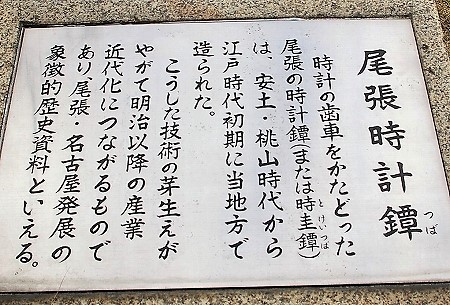 尾張時計鐔
つば
時計の歯車をかたどった
尾張の時計鐔(または時圭鐔)
とけいつば
は、安土・桃山時代から
江戸時代初期に当地方で
造られた。
こうした技術の芽生えが
やがて明治以降の産業
近代化につながるもので
あり、尾張・名古屋発展の
象徴的歴史資料といえる。